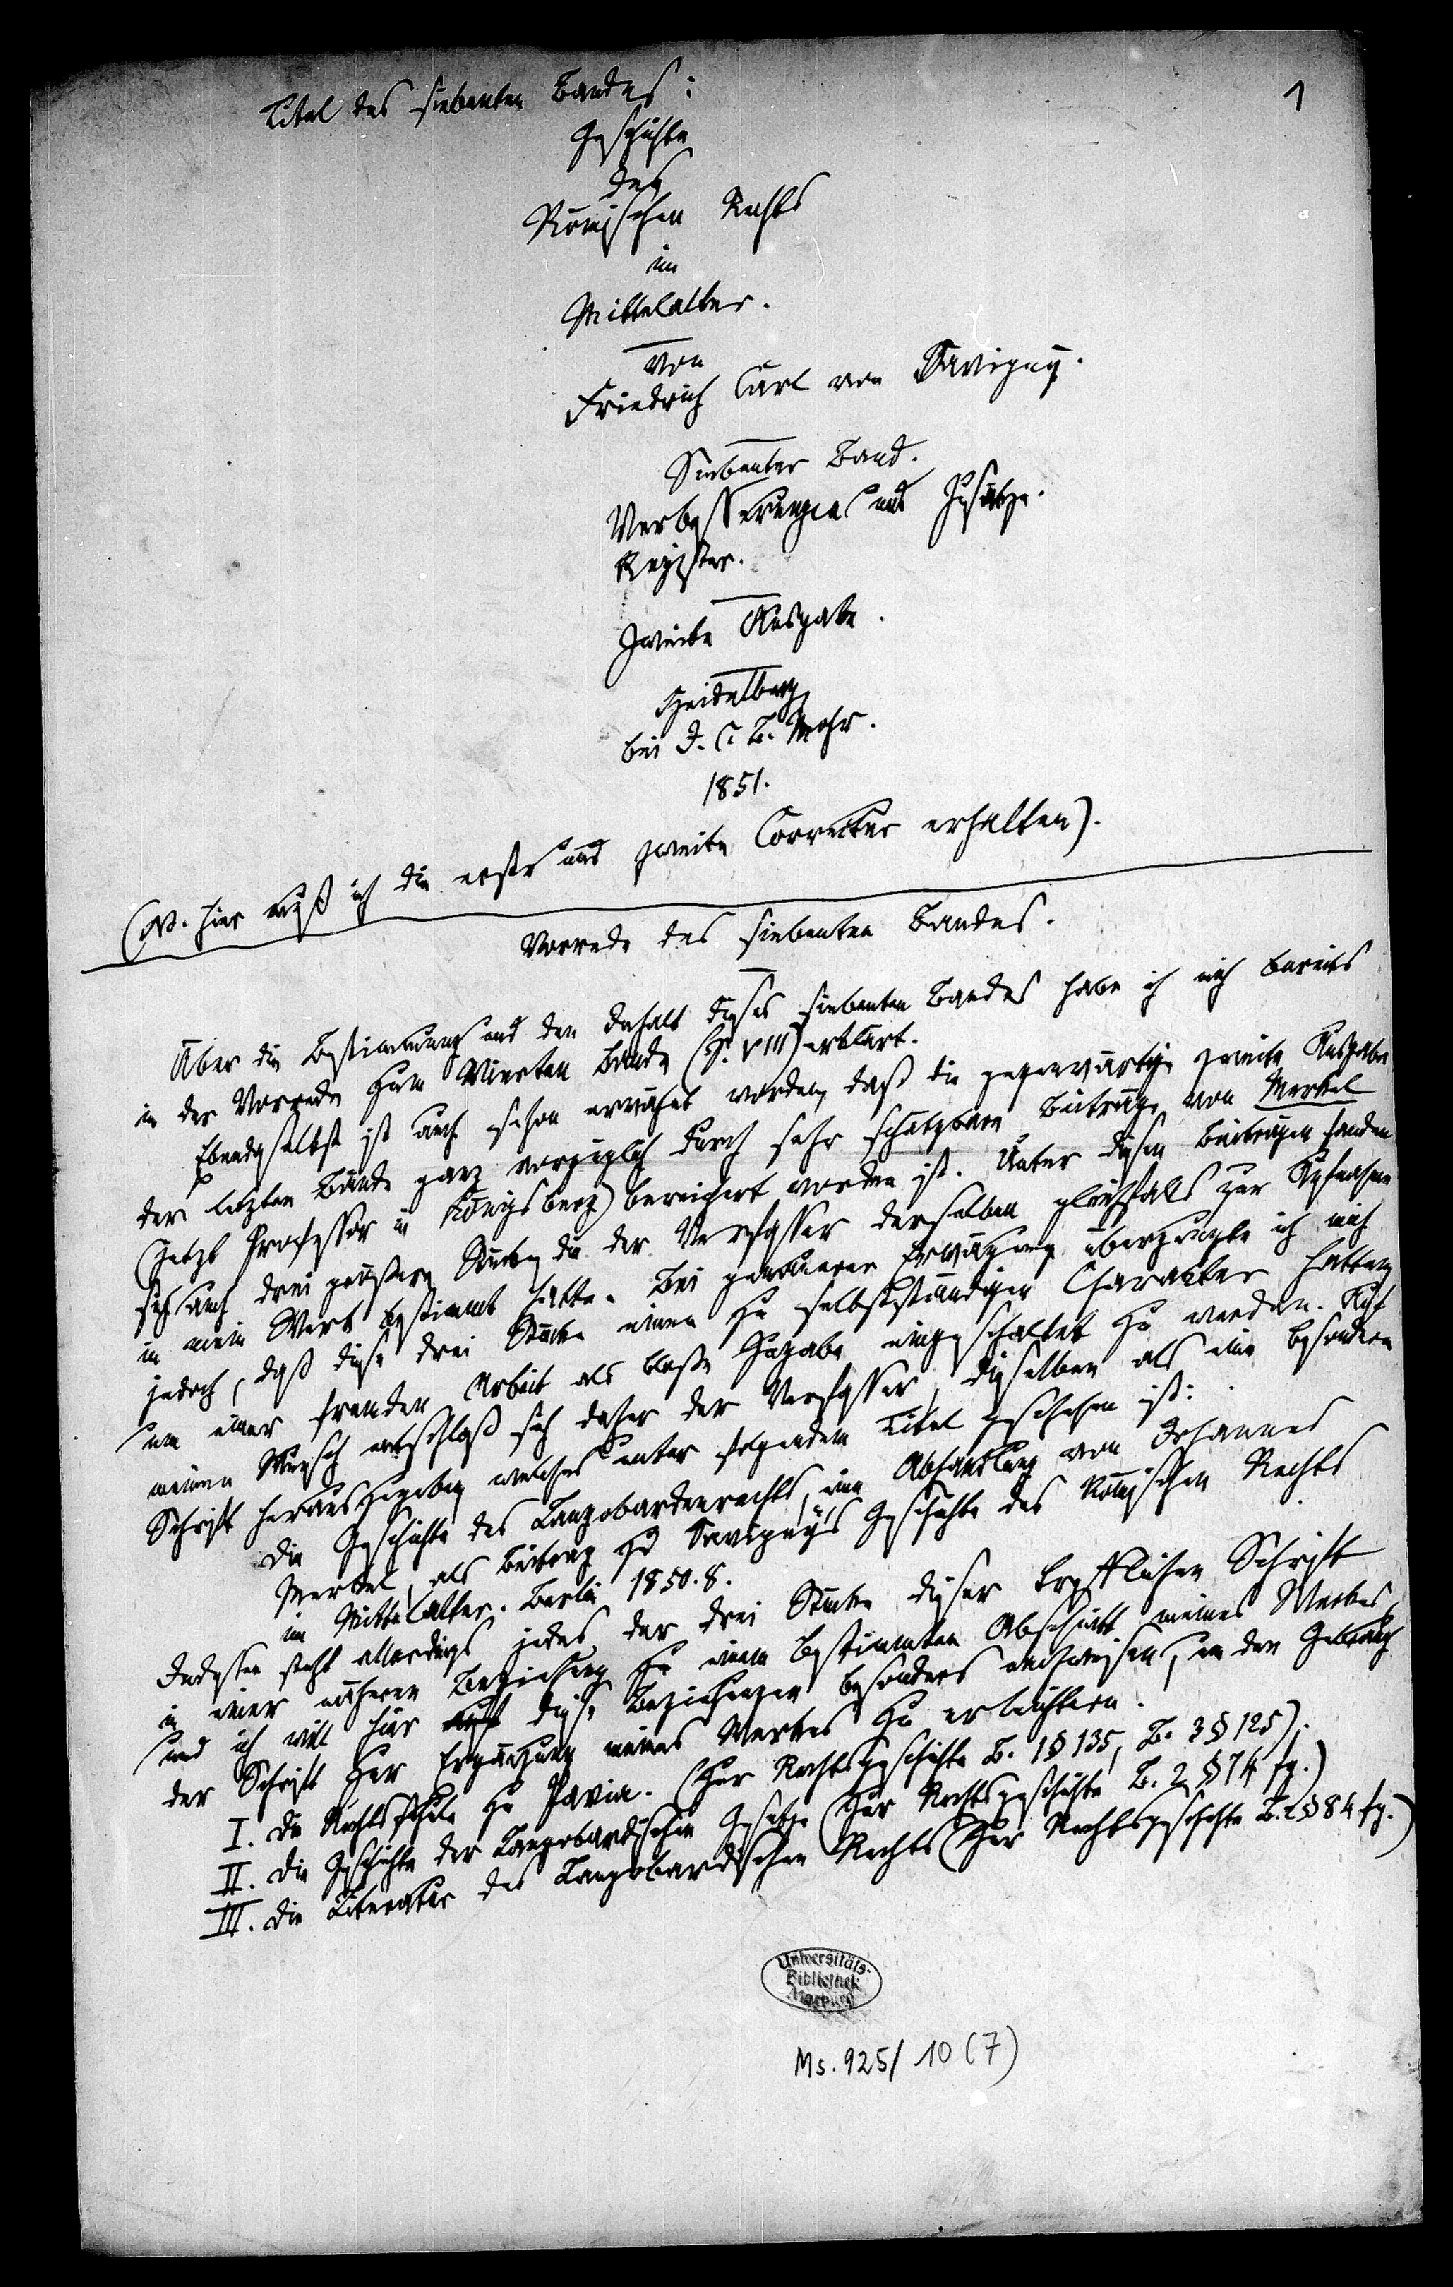 Titel des siebenten Bandes:
1
Geschichte
des
Römischen Rechts
im
Mittelalter.
von
Friedrich Carl von Savigny.
Siebenter Band.
Verbesserungen und Zusätze.
Register.
Zweite Ausgabe.
Heidelberg
bei J. C. B. Mohr.
1851.
(NB. hier muß ich die erste und zweite Correctur erhalten).
Vorrede des siebenten Bandes.
Über die Bestimmung und den Inhalt dieses siebenten Bandes habe ich mich bereits
in der Vorrede zum Vierten Bande (S. VIII) erklärt.
Ebendaselbst ist auch schon erwähnt worden, daß die gegenwärtige zweite Ausgabe
der letzten Bände ganz vorzüglich durch sehr schätzbare Beiträge von Merkel
(jetzt Professor in Königsberg) bereichert worden ist. Unter diesen Beiträgen fanden
sich auch drei größere Stücke, die der Verfasser derselben gleichfalls zur Aufnahme
in mein Werk bestimmt hatte. Bei genauerer Erwägung überzeugte ich mich
jedoch, daß diese drei Stücke einen zu selbstständigen Charakter hatten,
um einer fremden Arbeit als bloße Zugabe eingeschaltet zu werden. Auf
meinen Wunsch entschloß sich daher der Verfasser, dieselben als eine besondere
Schrift herauszugeben, welches unter folgendem Titel geschehen ist:
Die Geschichte des Langobardenrechts, eine Abhandlung von Johannes
Merkel, als Beitrag zu Savigny's Geschichte des Römischen Rechts
im Mittelalter. Berlin 1850. 8.
Indessen steht allerdings jedes der drei Stücke dieser trefflichen Schrift
in einer näheren Beziehung zu einem bestimmten Abschnitt meines Werkes,
und ich will hier auf diese Beziehungen besonders nachweisen, um den Gebrauch
der Schrift zur Ergänzung meines Werkes zu erleichtern.
I. Die Rechtsschule zu Pavia. (Zur Rechtsgeschichte B. 1 § 135, B. 3 § 125).
II. Die Geschichte der Langobardischen Gesetze (Zur Rechtsgeschichte B. 2 § 74 fg.)
III. Die Literatur des Langobardischen Rechts (Zur Rechtsgeschichte B. 2 § 84 fg.)
Universitäts-
Bibliothek
Marburg
Ms. 925/10 (7)